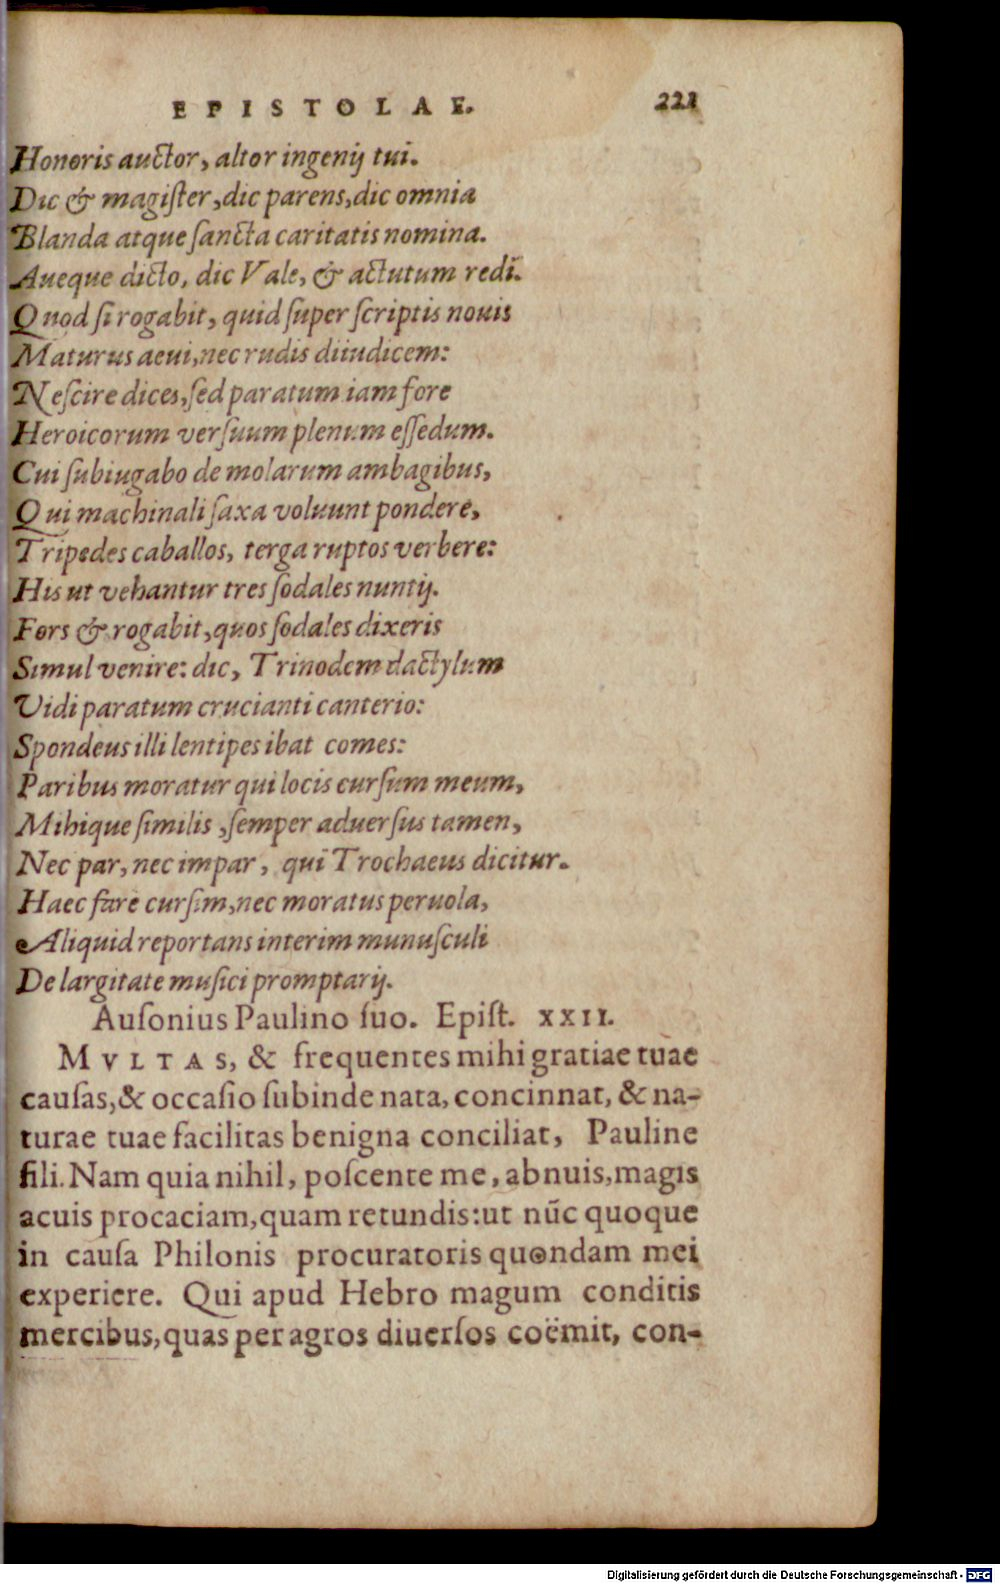 EPISTOLAE. 221
Honoris auctor, altor ingenij tui.
Dic & magiſter, dic parens, dic omnia
Blanda atque ſancta caritatis nomina.
Aueque dicto, dic Vale, & actutum redi.
Quod ſi rogabit, quid ſuper ſcriptis nouis
Maturus aeui, nec rudis diiudicem:
Neſcire dices, ſed paratum iam fore
Heroicorum verſuum plenum eſſedum.
Cui ſubiugabo de molarum ambagibus,
Qui machinali ſaxa voluunt pondere,
Tripedes caballos, terga ruptos verbere:
His ut vehantur tres ſodales nuntij.
Fors & rogabit, quos ſodales dixeris
Simul venire: dic, Trinodem dactylum
Vidi paratum crucianti canterio:
Spondeus illi lentipes ibat comes:
Paribus moratur qui locis curſum meum,
Mihique ſimilis, ſemper aduerſus tamen,
Nec par, nec impar, qui Trochaeus dicitur.
Haec fare curſim, nec moratus peruola,
Aliquid reportans interim munuſculi
De largitate muſici promptarij.
Auſonius Paulino ſuo. Epiſt. XXII.
MVLTAS, & frequentes mihi gratiae tuae
cauſas, & occaſio ſubinde nata, concinnat, & na-
turae tuae facilitas benigna conciliat, Pauline
fili. Nam quia nihil, poſcente me, abnuis, magis
acuis procaciam, quam retundis: ut nūc quoque
in cauſa Philonis procuratoris quondam mei
experiere. Qui apud Hebro magum conditis
mercibus, quas per agros diuerſos coëmit, con-
Digitalisierung gefördert durch die Deutsche Forschungsgemeinschaft - DFG